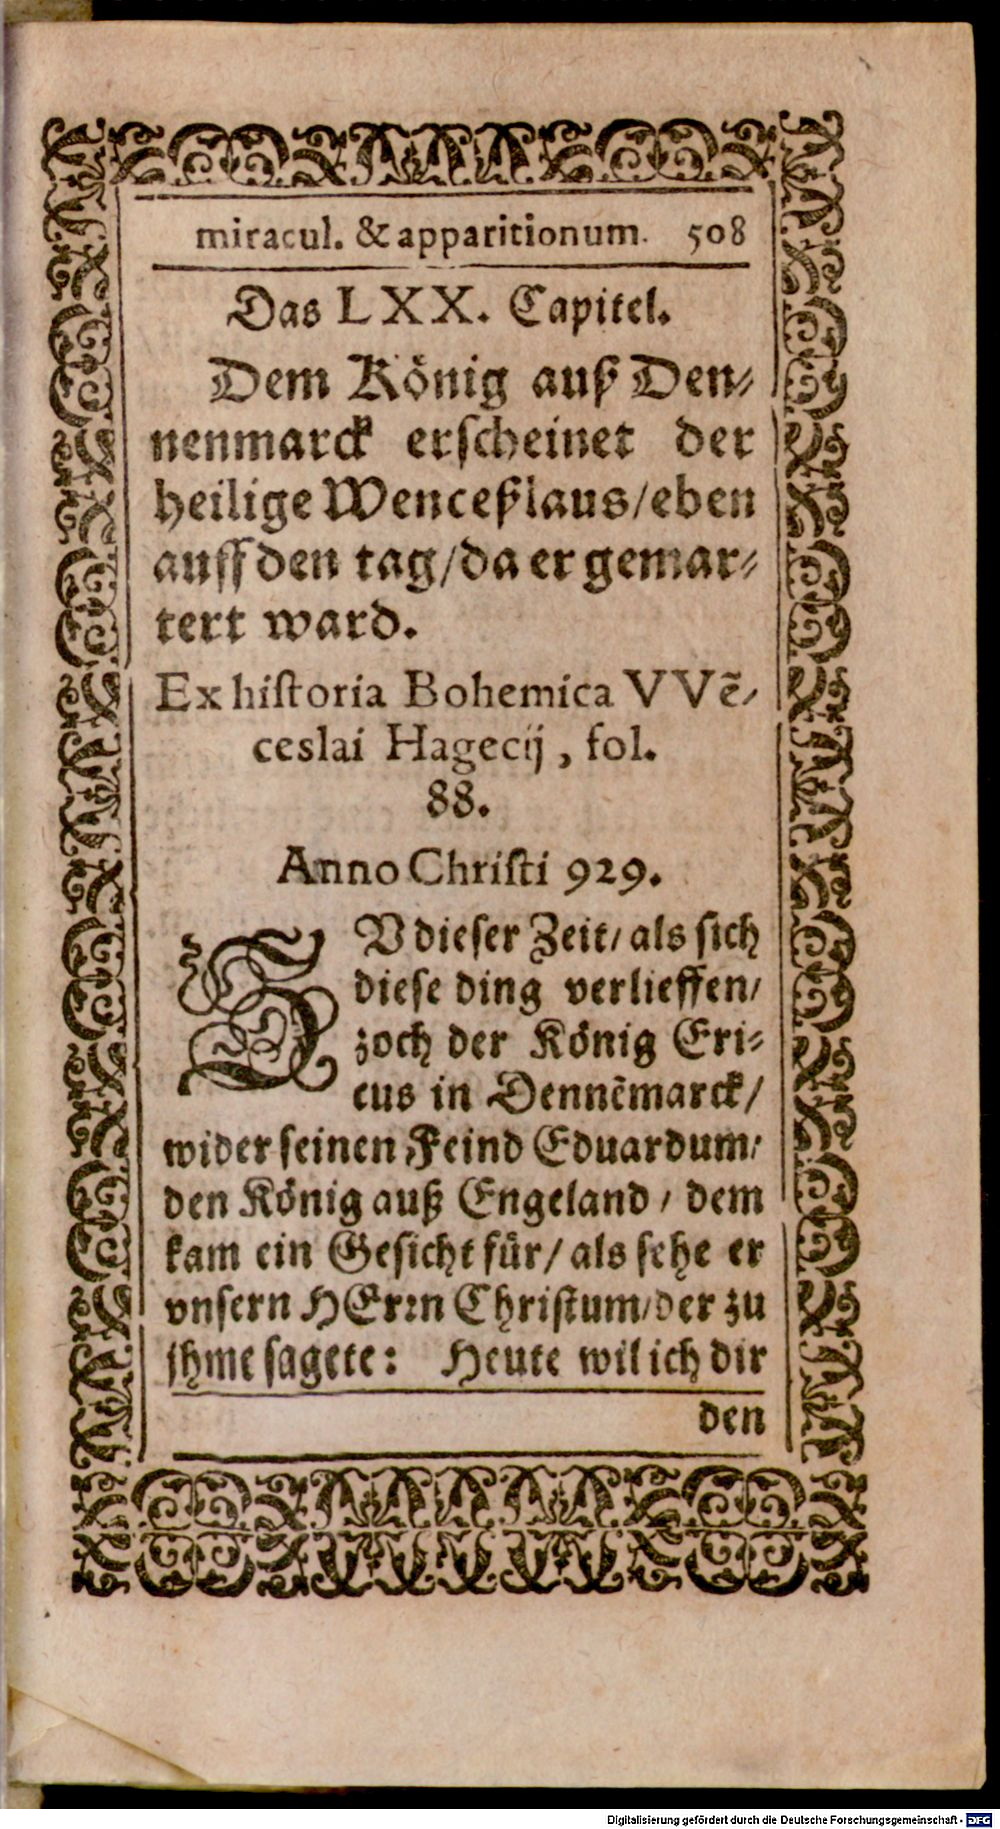 miracul. & apparitionum. 508
Das LXX. Capitel.
Dem König auß Den⸗
nenmarck erscheinet der
heilige Wenceßlaus/eben
auff den tag/da er gemar⸗
tert ward.
Ex historia Bohemica VVẽ⸗
ceslai Hagecij, fol.
88.
Anno Christi 929.
ZV dieser Zeit/ als sich
diese ding verlieffen/
zoch der König Eri⸗
cus in Dennẽmarck/
wider seinen Feind Eduardum/
den König auß Engeland / dem
kam ein Gesicht für/ als sehe er
vnsern HErꝛn Christum/der zu
jhme sagete: Heute wil ich dir
den
Digitalisierung gefördert durch die Deutsche Forschungsgemeinschaft - DFG